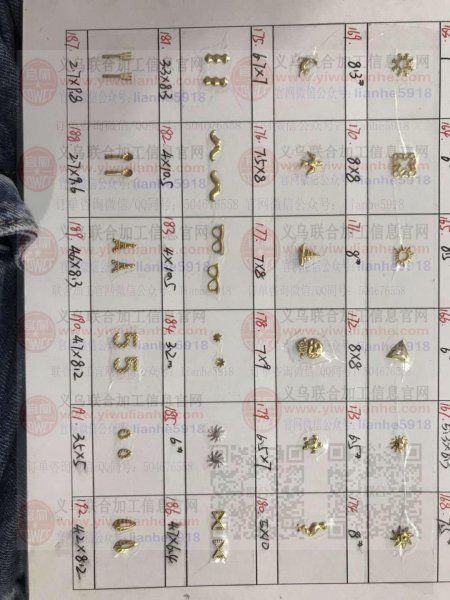 187. 2.7×9.8
181. 3.3×8.3
175. 6.7×7
169. 8.3*
188. 2.7×9.6
182. 4×10.5
176. 7.5×8
170. 8×8
189. 4.6×8.3
183. 4×10.5
177. 7×8
171. 8*
190. 4.7×8.2
184. 3.2
178. 7×9
172. 8×8
191. 3.5×5
185. 6*
179. 6.5×7
173. 6.5*
192. 4.2×8.2
186. 4.7×6.4
180. 5×10
174. 8*
168
义乌联合加工信息官网
www.yiwulianhe.com
官网微信公众号：lianhe5918
订单咨询微信/QQ同号：504676558